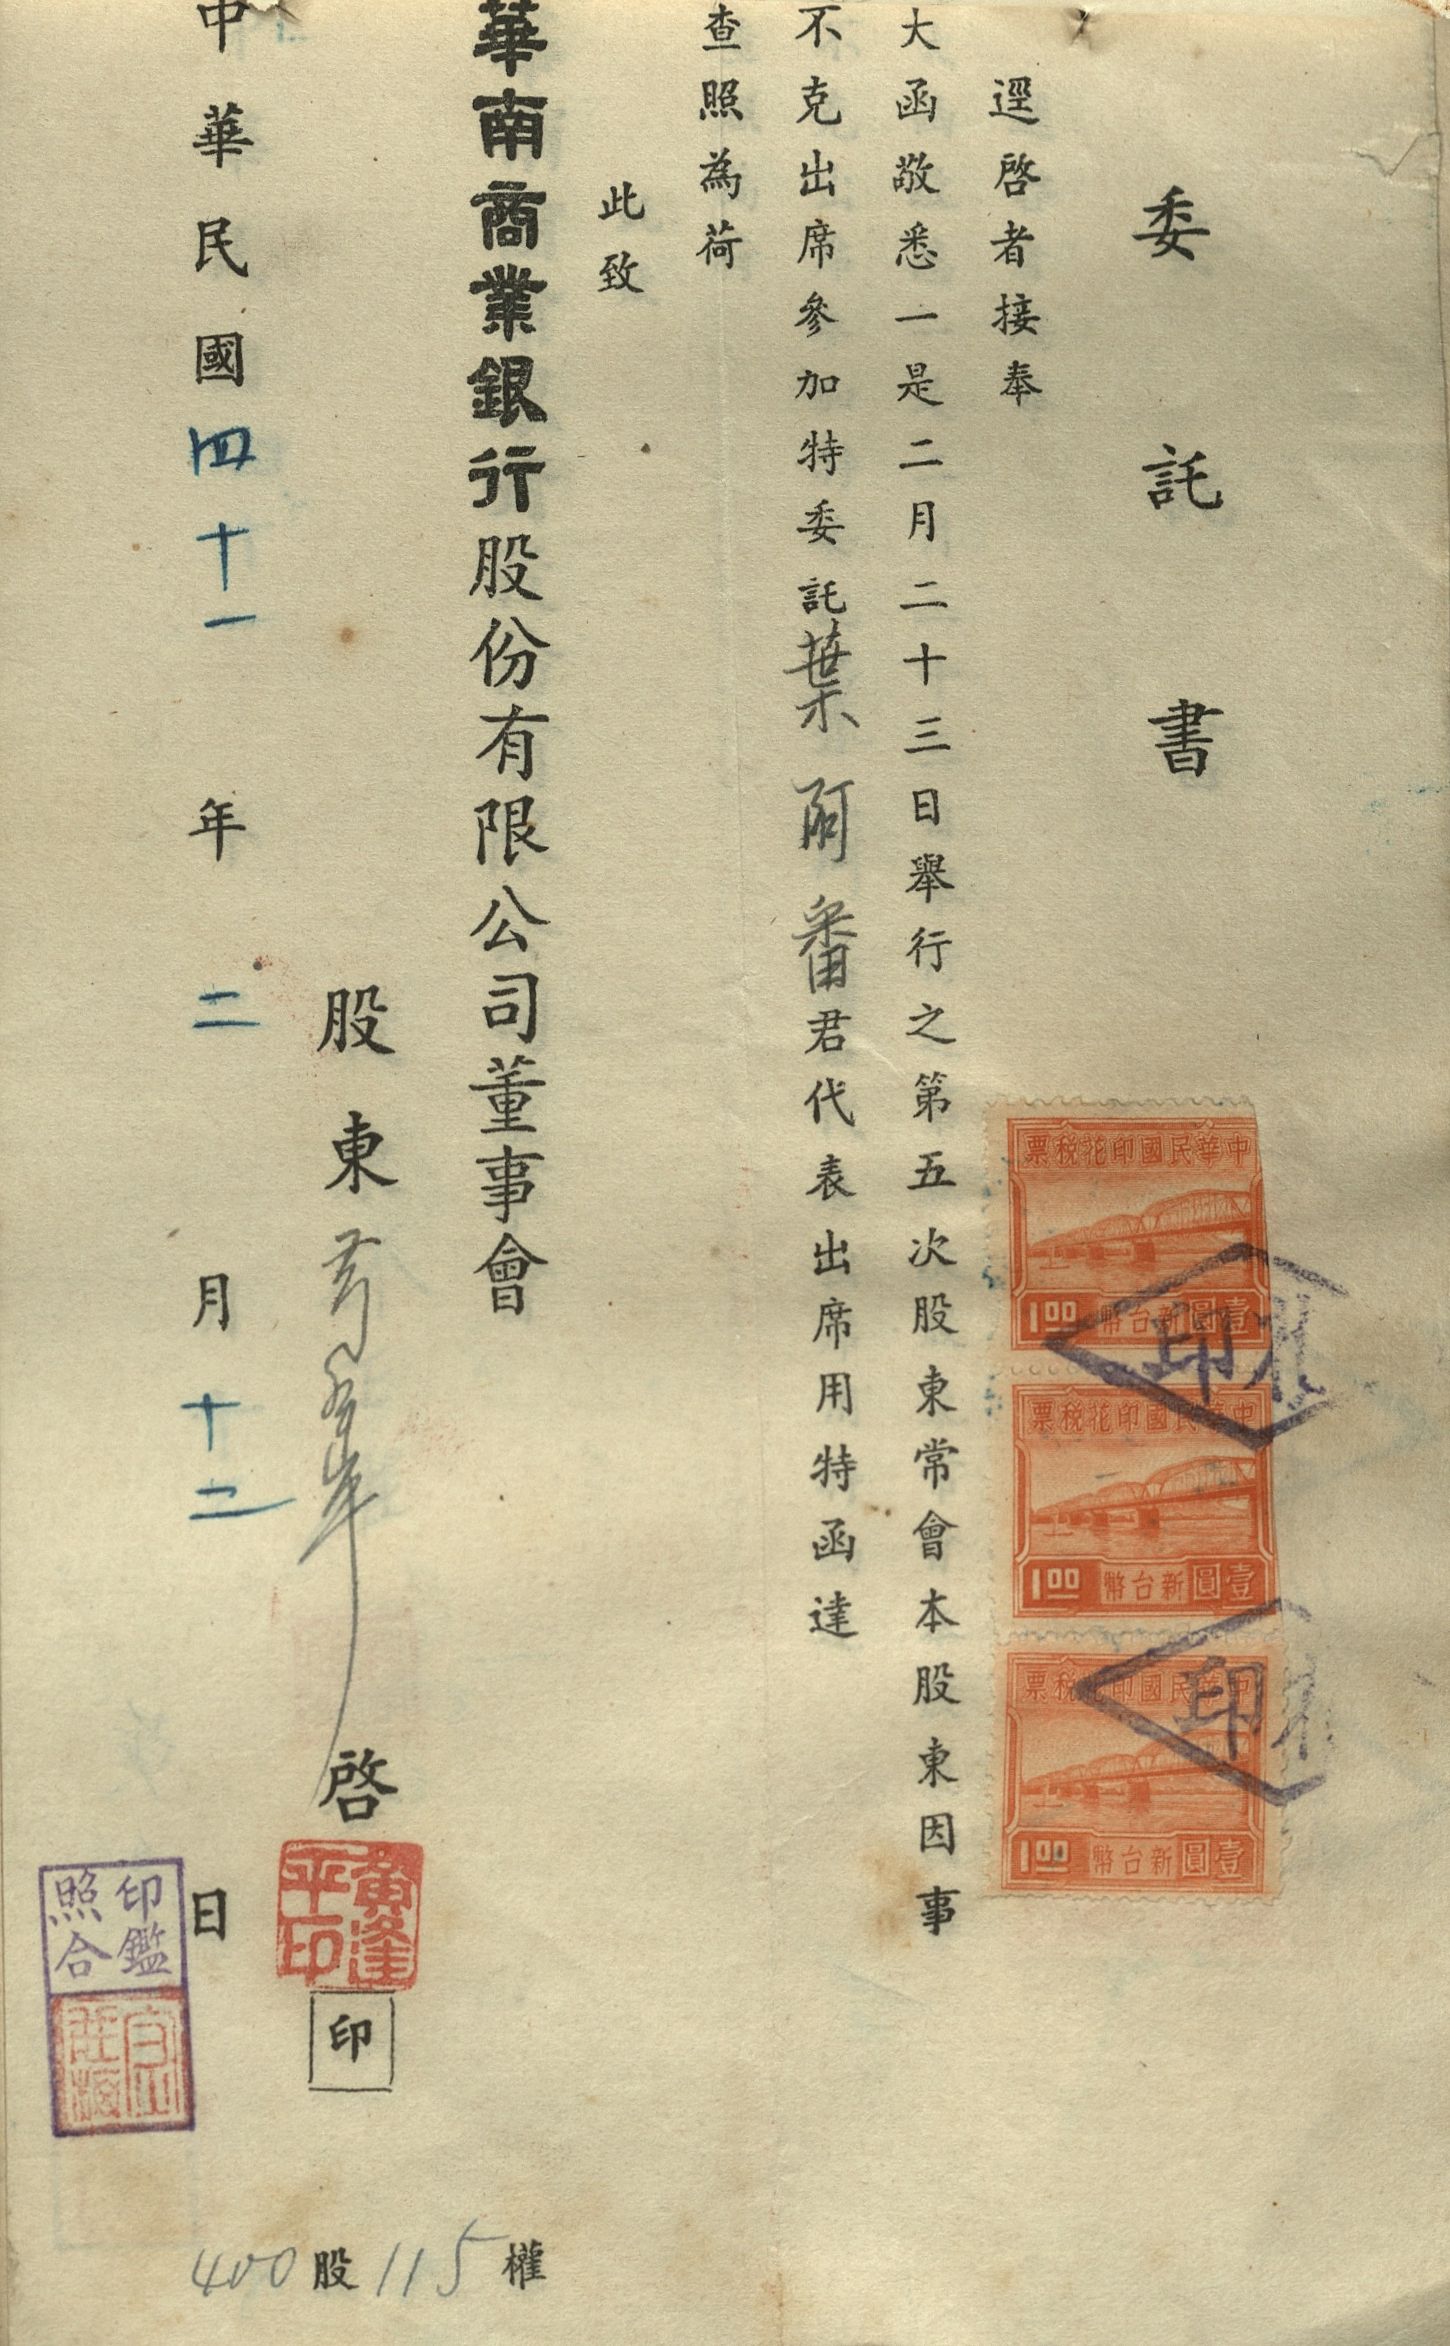 委託書
逕啓者接奉
大函敬悉一是二月二十三日舉行之第五次股東常會本股東因事
不克出席參加特委託葉阿番君代表出席用特函達
查照為荷
此致
華南商業銀行股份有限公司董事會
股東 啓
黃逢平印
印
中華民國四十一年二月十二日
印鑑
照合
400股115權
中華民國印花稅票
壹圓新台幣
1.00
中華民國印花稅票
壹圓新台幣
1.00
中華民國印花稅票
壹圓新台幣
1.00
印
印